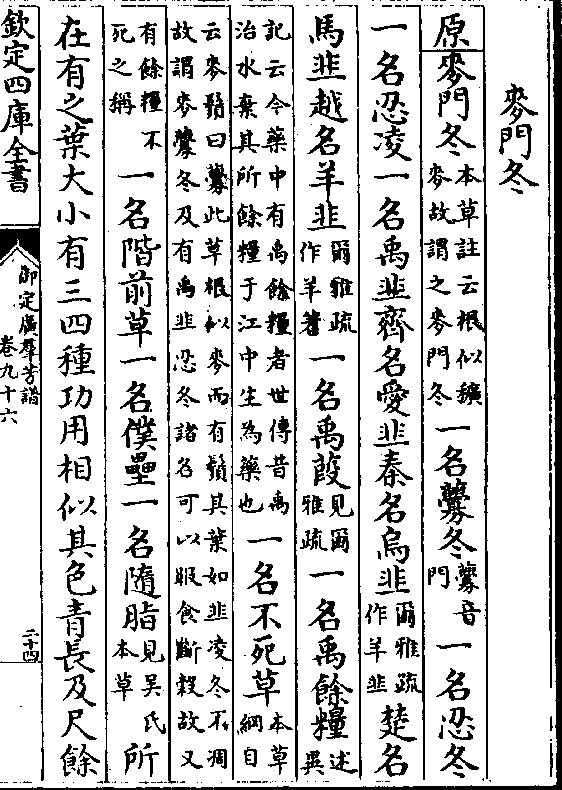 麥門冬
原麥門冬本草註云根似穬麥故謂之麥門冬一名虋冬虋音門一名忍冬
一名忍凌一名禹韭齊名愛韭秦名烏韭爾雅疏作羊韭楚名
馬韭越名羊韭爾雅疏作羊蓍一名禹葭見爾雅疏一名禹餘糧述異
記云今藥中有禹餘糧者世傳昔禹治水棄其所餘糧于江中生為藥也一名不死草本草綱目
云麥鬚曰虋此草根似麥而有鬚其葉如韭凌冬不凋故謂麥虋冬及有禹韭忍冬諸名可以服食斷穀故又
有餘糧不死之稱一名階前草一名僕壘一名隨脂見吳氏本草所
在有之葉大小有三四種功用相似其色青長及尺餘
欽定四庫全書
御定廣羣芳譜
卷九十六
二十四